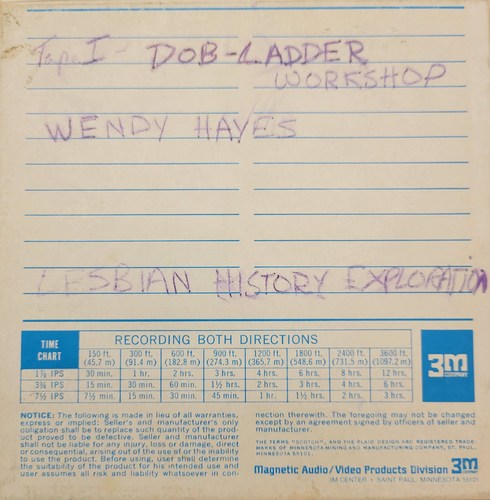 Tape I - DOB-LADDER
WORKSHOP
WENDY HAYES
LESBIAN HISTORY EXPLORATION
TIME CHART
RECORDING BOTH DIRECTIONS
150 ft. (45,7 m) 300 ft. (91.4 m) 600 ft. (182,8 m) 900 ft. (274,3 m) 1200 ft. (365,7 m) 1800 ft. (548,6 m) 2400 ft. (731,5 m) 3600 ft. (1097,2 m)
1⅞ IPS 30 min. 1 hr. 2 hrs. 3 hrs. 4 hrs. 6 hrs. 8 hrs. 12 hrs.
3¾ IPS 15 min. 30 min. 60 min. 1½ hrs. 2 hrs. 3 hrs. 4 hrs. 6 hrs.
7½ IPS 7½ min. 15 min. 30 min. 45 min. 1 hr. 1½ hrs. 2 hrs. 3 hrs.
3M
COMPANY
NOTICE: The following is made in lieu of all warranties,
express or implied: Seller's and manufacturer's only
obligation shall be to replace such quantity of the prod-
uct proved to be defective. Seller and manufacturer
shall not be liable for any injury, loss or damage, direct
or consequential, arising out of the use of or the inability
to use the product. Before using, user shall determine
the suitability of the product for his intended use and
user assumes all risk and liability whatsoever in con-
nection therewith. The foregoing may not be changed
except by an agreement signed by officers of seller and
manufacturer.
THE TERMS "SCOTCH", AND THE PLAID DESIGN ARE REGISTERED TRADE-
MARKS OF MINNESOTA MINING AND MANUFACTURING COMPANY, ST. PAUL,
MINNESOTA 55101.
Magnetic Audio/Video Products Division 3M
3M CENTER • SAINT PAUL, MINNESOTA 55101 COMPANY